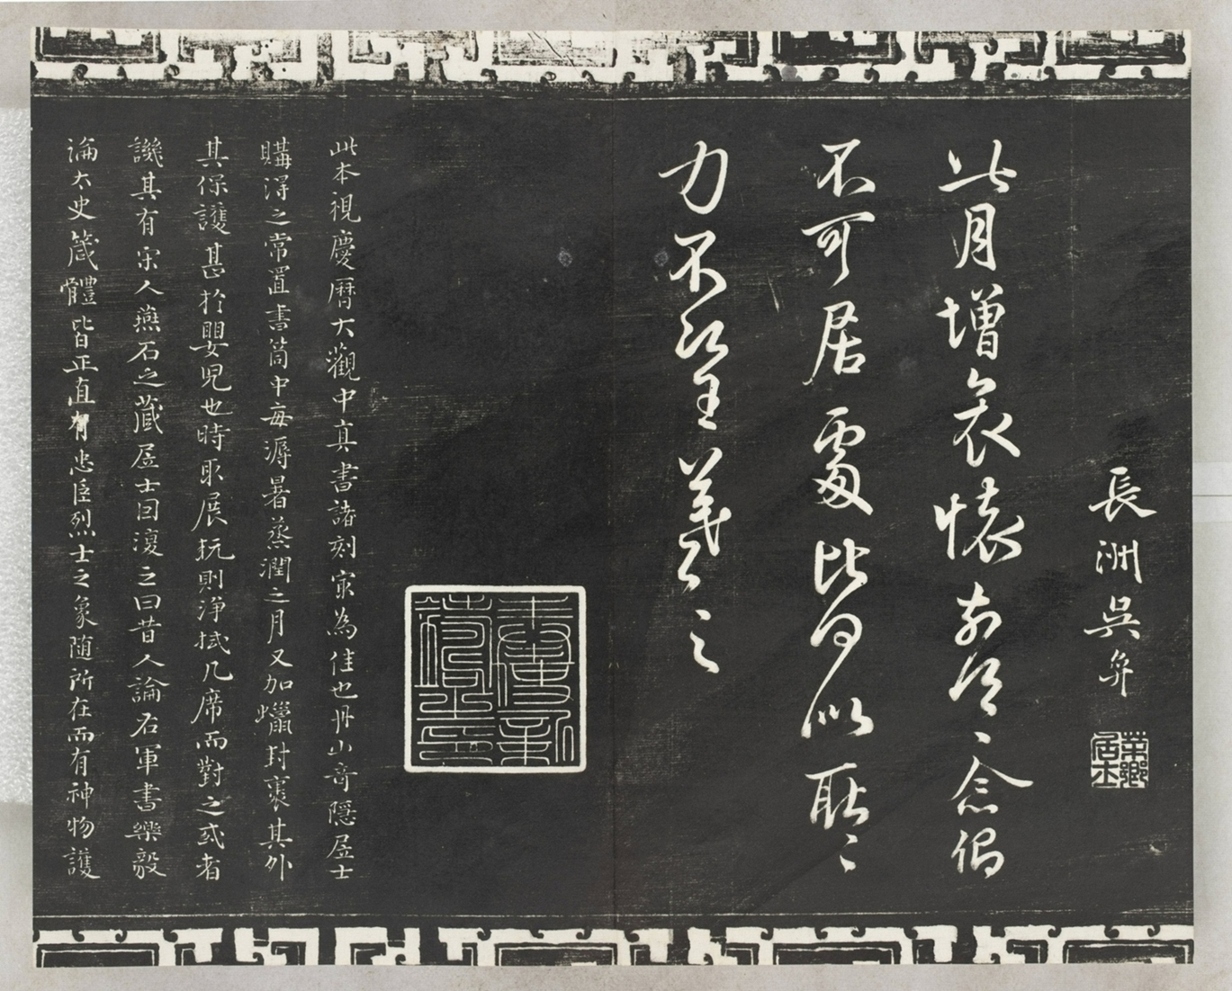 長洲吳弈
此月增哀懷前念傷
不可居處比何似耿〻
力不次王羲之
此本視慶曆大觀中真書諸刻寂為佳也丹山奇隱居士
購淂之常置書筒中每溽暑蒸潤之月又加蠟封裹其外
其保護甚於嬰児也時取展玩則淨拭几席而對之或者
譏其有宋人燕石之藏居士因復之曰昔人論右軍書樂毅
論太史箴體皆正直有忠臣烈士之象随所在而有神物護